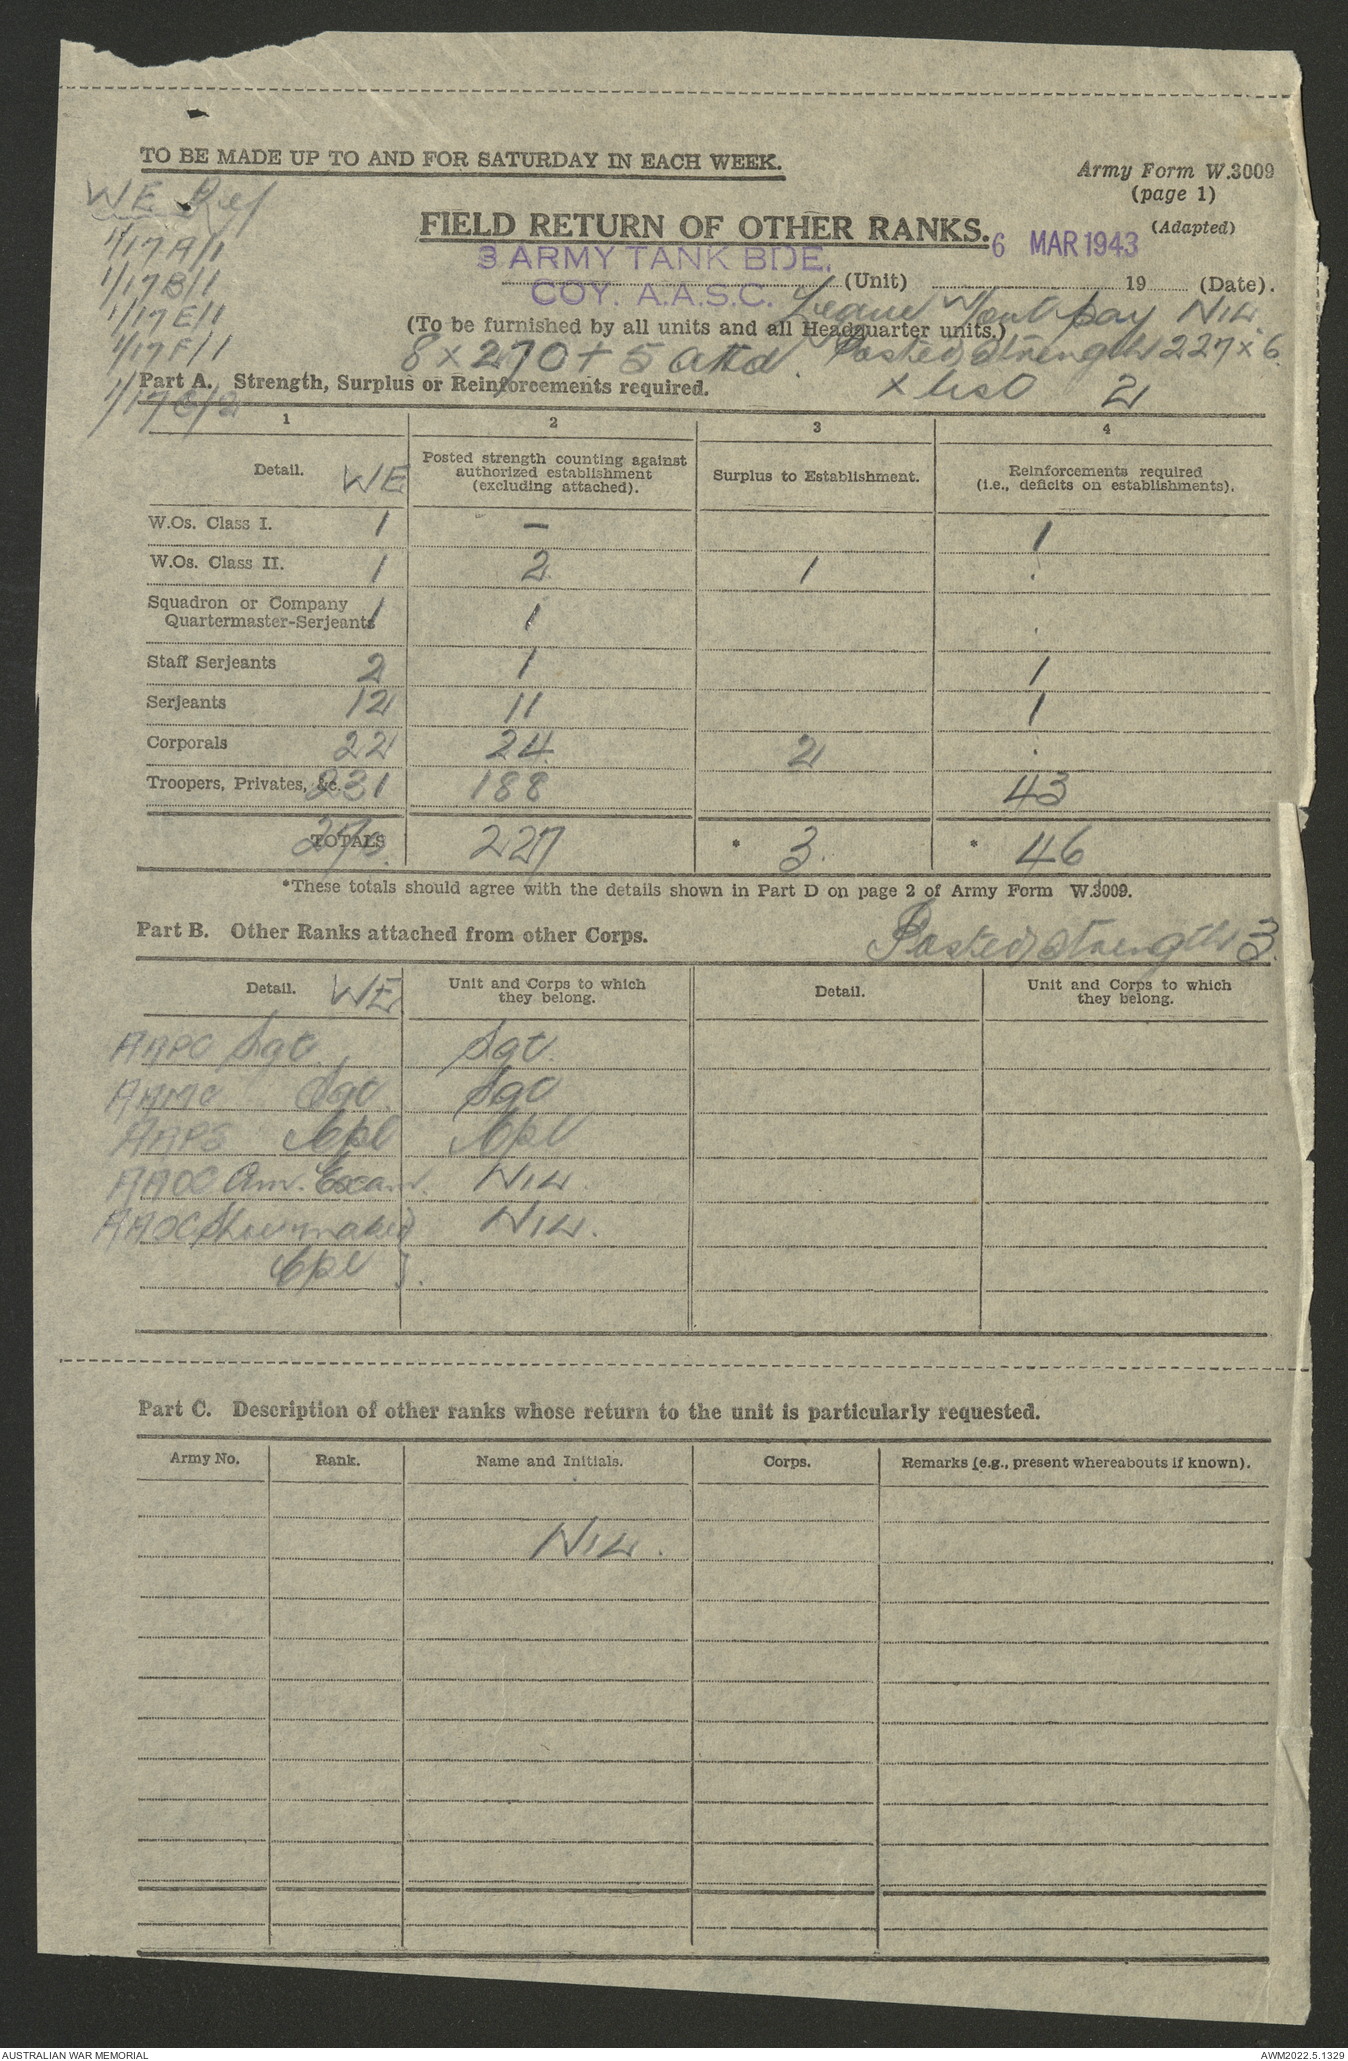 TO BE MADE UP TO AND FOR SATURDAY IN EACH WEEK.
Army Form W.3009
(page 1)
(Adapted)
WE Ref
1/17A/1
1/17B/1
1/17E/1
1/17F/1
1/17G/2
FIELD RETURN OF OTHER RANKS.
3 ARMY TANK BDE.
COY. A.A.S.C.
(Unit) 6 MAR 1943 19 (Date).
Leave W/out pay NIL
(To be furnished by all units and all Headquarter units.)
8 x 270 + 5 attd. Posted strength 227 x 6
x list 2
Part A. Strength, Surplus or Reinforcements required.
1 2 3 4
Detail. WE Posted strength counting against authorized establishment (excluding attached). Surplus to Establishment. Reinforcements required (i.e., deficits on establishments).
W.Os. Class I. 1 - 1
W.Os. Class II. 1 2 1 .
Squadron or Company
Quartermaster-Serjeants 1 1 .
Staff Serjeants 2 1 1
Serjeants 12 11 1
Corporals 22 24 2 .
Troopers, Privates, &c. 231 188 43
TOTALS 270 227 * 3. * 46
*These totals should agree with the details shown in Part D on page 2 of Army Form W.3009.
Part B. Other Ranks attached from other Corps. Posted strength 3.
Detail. WE Unit and Corps to which they belong. Detail. Unit and Corps to which they belong.
AAPC Sgt. Sgt.
AAMC Sgt. Sgt
AAPS Cpl Cpl
AAOC Am. Exam. NIL.
AAOC Shoemaker } NIL.
Cpl }.
Part C. Description of other ranks whose return to the unit is particularly requested.
Army No. Rank. Name and Initials. Corps. Remarks (e.g., present whereabouts if known).
NIL.
AUSTRALIAN WAR MEMORIAL
AWM2022.5.1329